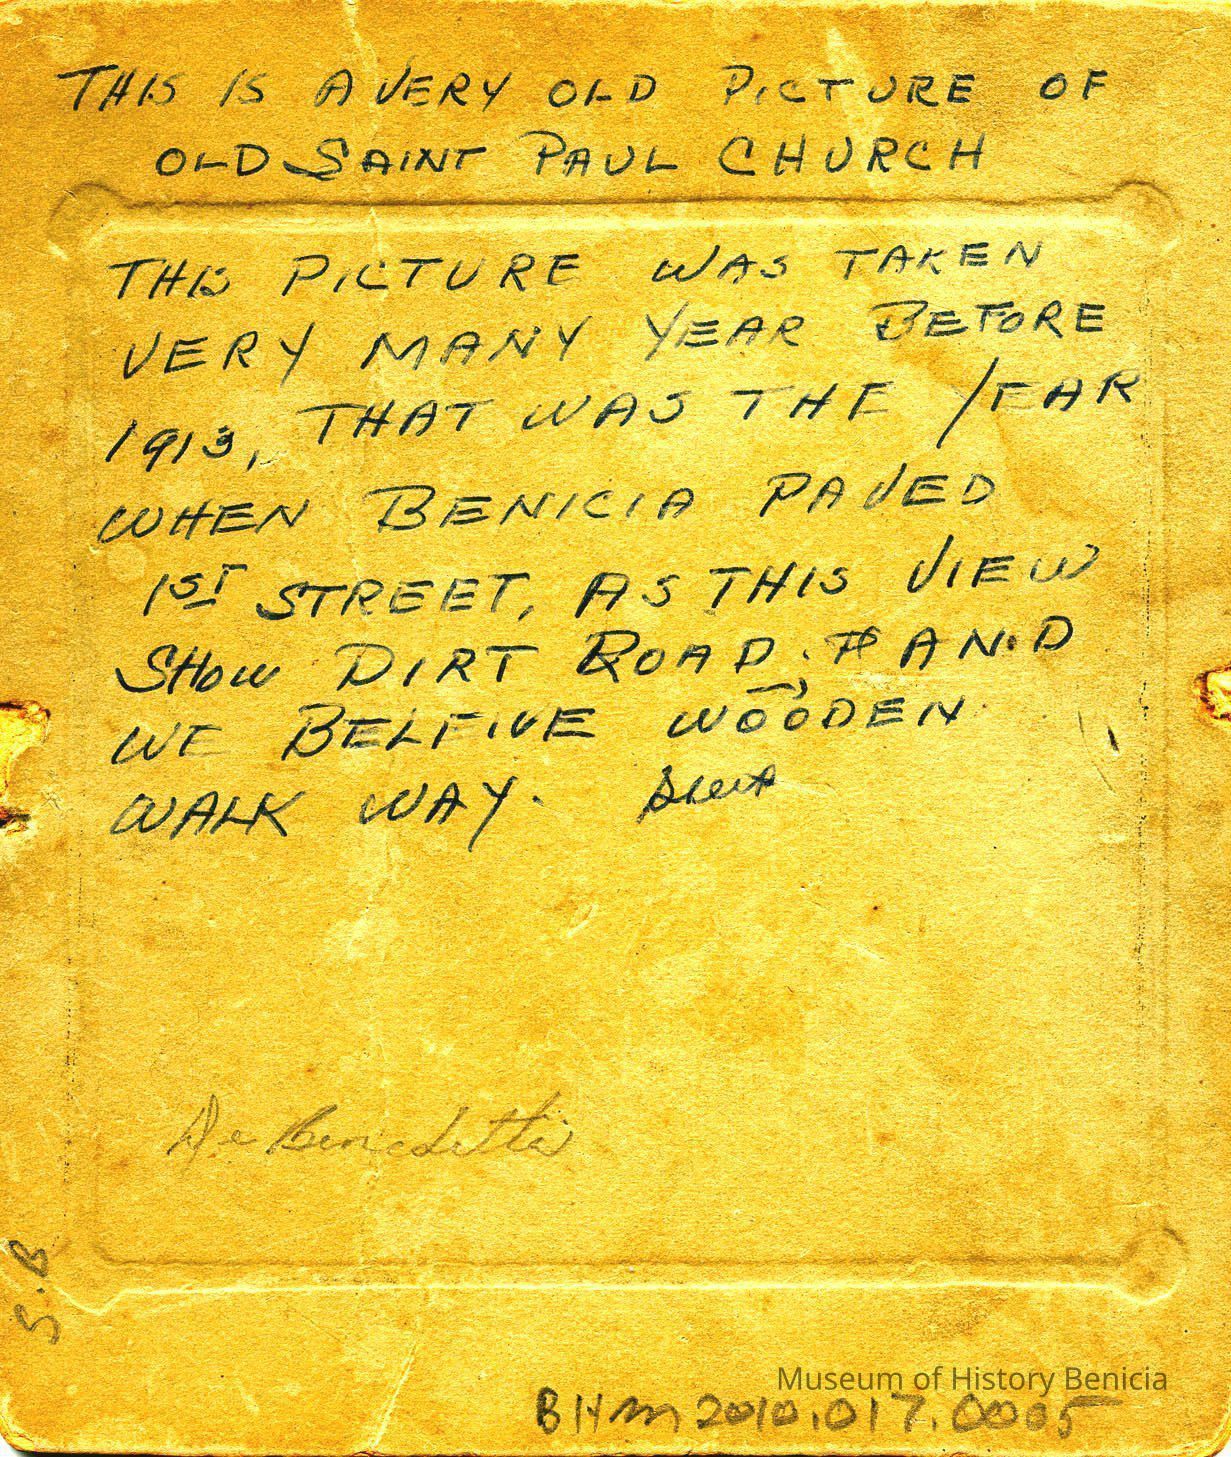 THIS IS A VERY OLD PICTURE OF
OLD SAINT PAUL CHURCH
THIS PICTURE WAS TAKEN
VERY MANY YEAR BEFORE
1913, THAT WAS THE YEAR
WHEN BENICIA PAVED
1ST STREET, AS THIS VIEW
SHOW DIRT ROAD, AND
WE BELEIVE WOODEN
WALK WAY.
De Benedetti
S.B
Museum of History Benicia
BHM 2010.017.0005